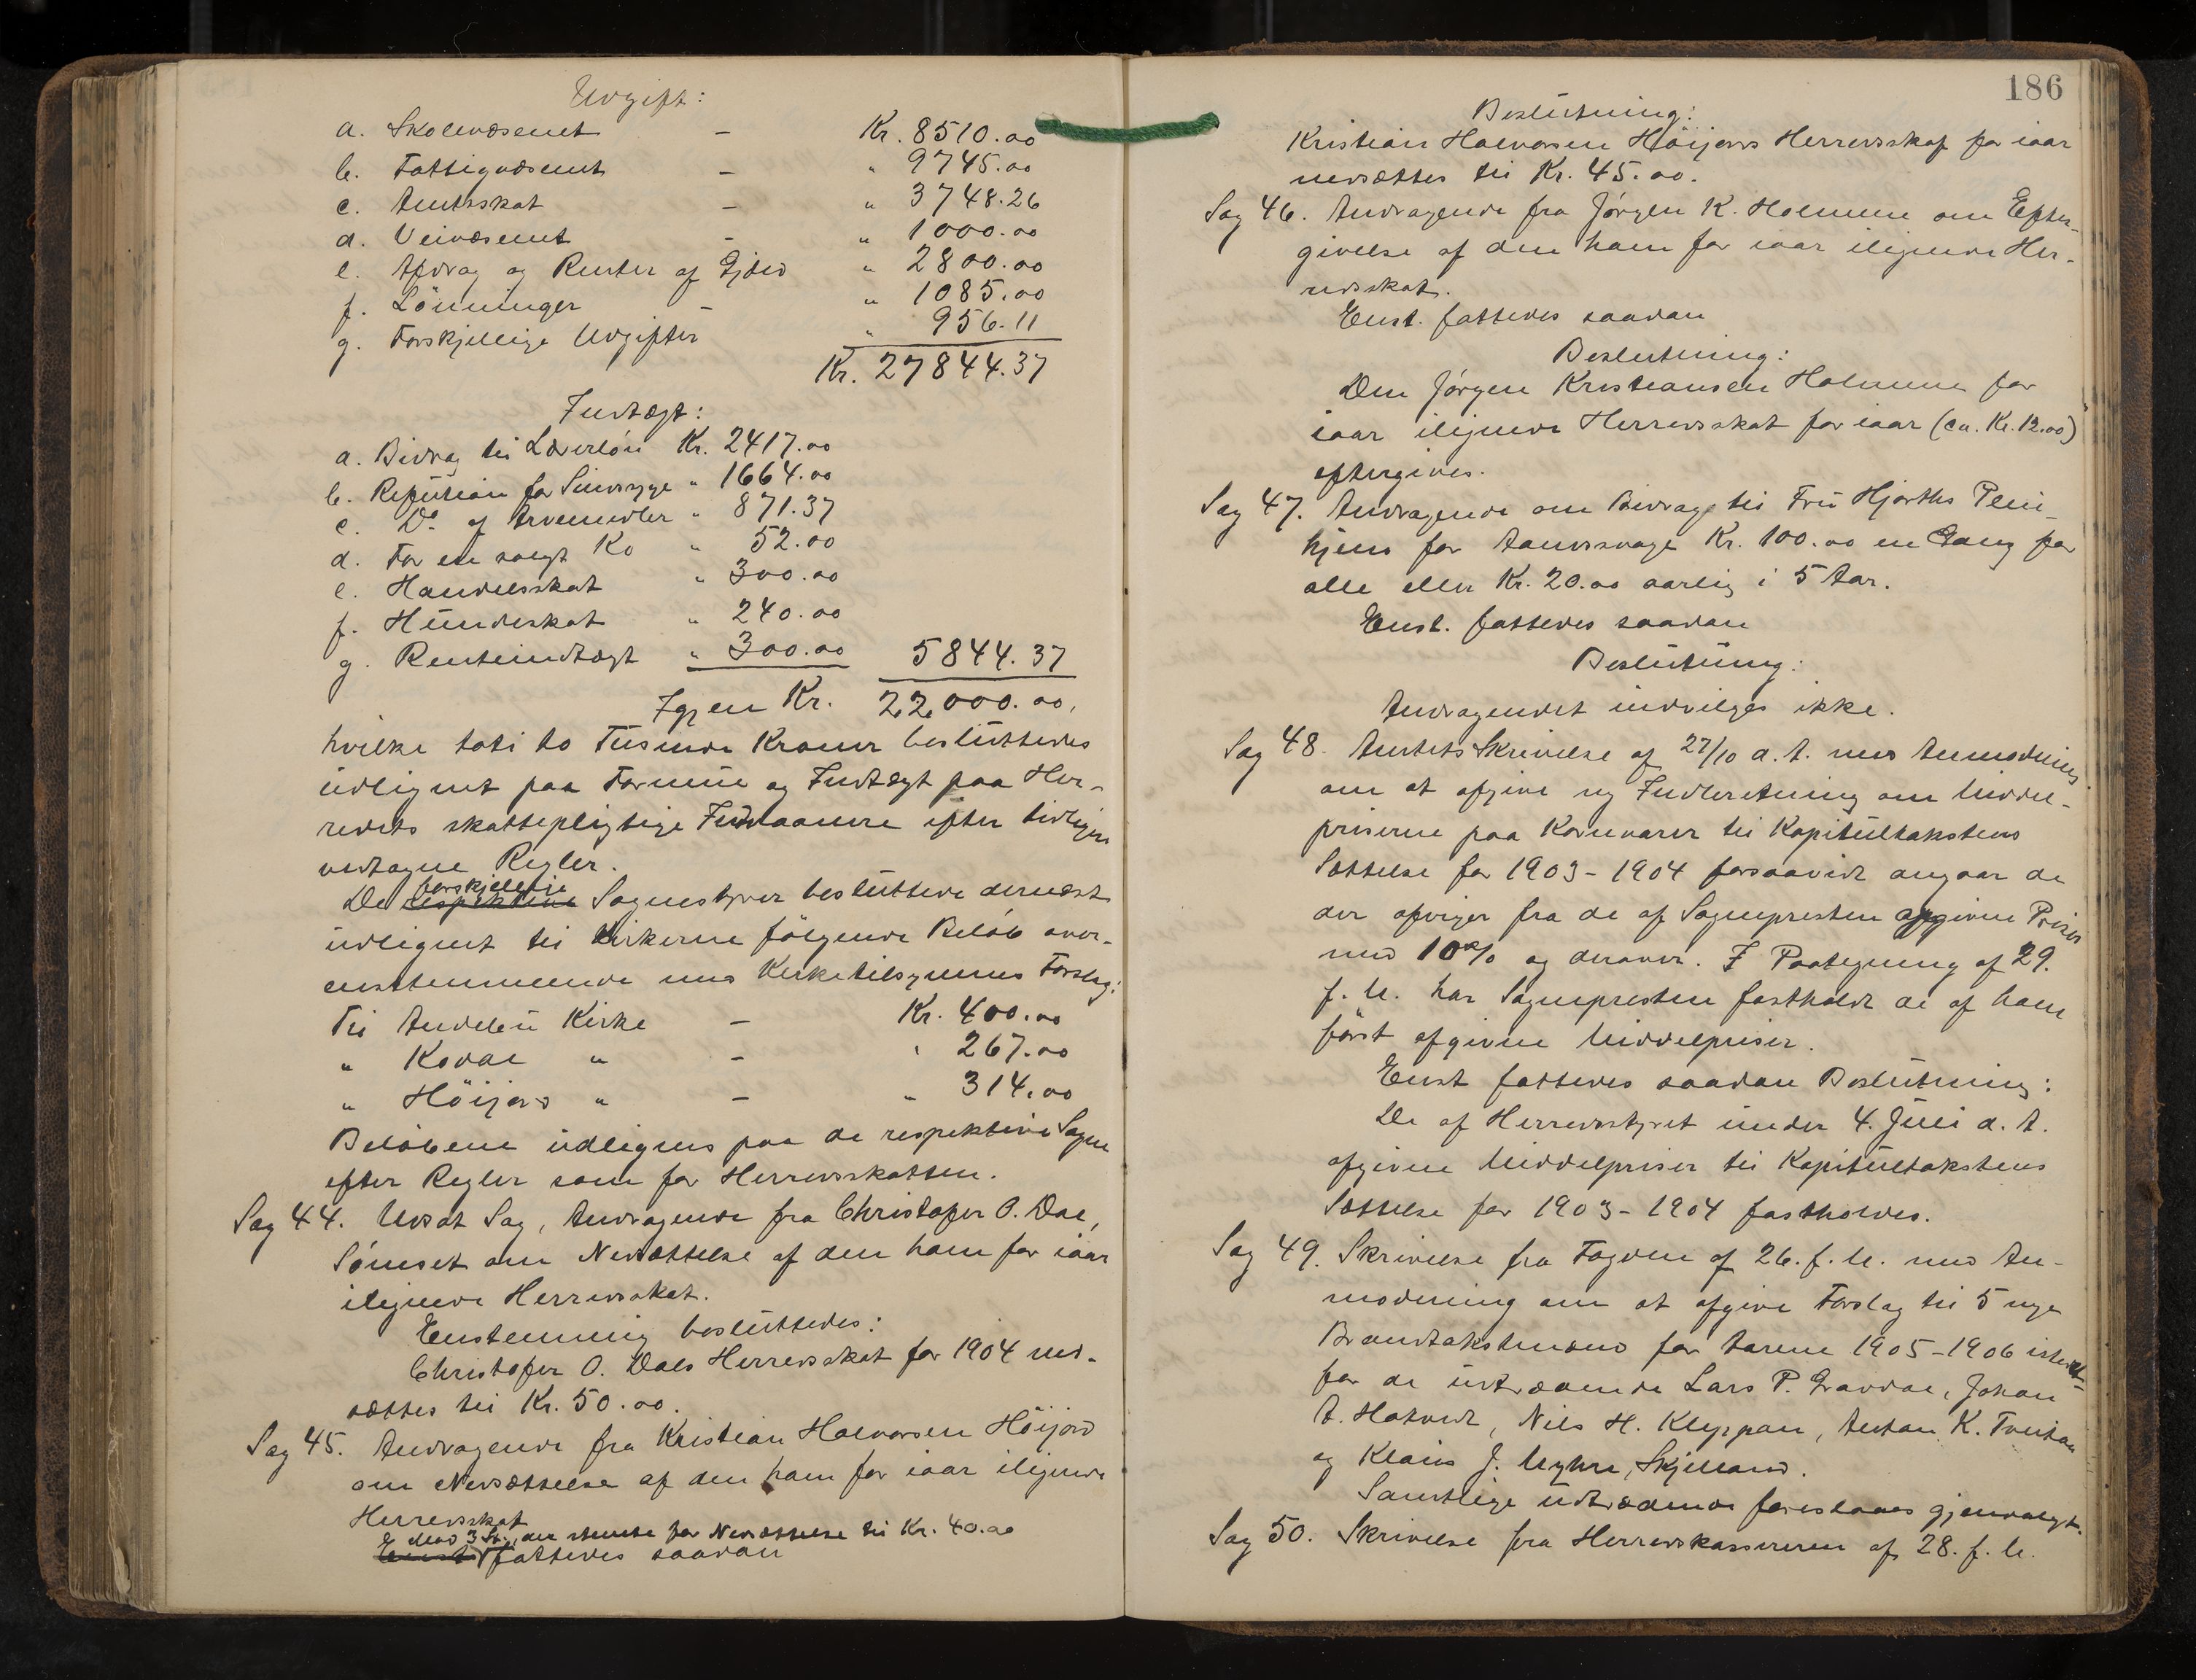 Udgift:
a. Skolevæsenet – Kr. 8510.00
b. Fattigvæsenet – " 9745.00
c. Amtsskat – " 3748.26
d. Veivæsenet – " 1000.00
e. Afdrag og Renter af Gjæld " 2800.00
f. Lönninger – " 1085.00
g. Forskjellige Udgifter " 956.11
Kr. 27844.37
Indtægt:
a. Bidrag til Lærerløn Kr. 2417.00
b. Refusion for Sindssyge " 1664.00
c. Do af Arvemidler " 871.37
d. For en solgt Ko " 52.00
e. Handelsskat " 300.00
f. Hundeskat " 240.00
g. Renteindtægt " 300.00 5844.37
Igjen Kr. 22,000.00,
hvilke toti to Tusinde Kroner besluttedes
udlignet paa Formue og Indtægt paa Her-
redets skattepligtige Indvaanere efter tidligere
vedtagne Regler.
De forskjellige respektive Sognestyrer besluttede dernæst
udlignet til Kirkerne følgende Beløb over-
ensstemmende med Kirketilsynenes Forslag:
Til Andebu Kirke – Kr. 400.00
" Kodal " – " 267.00
" Höijord " – " 314.00
Beløbene udlignes paa de respektive Sogne
efter Regler som for Herredsskatten.
Sag 44. Udsat Sag, Andragende fra Christofer O. Dal,
Sömset om Nedsættelse af den ham for iaar
ilignede Herredsskat.
Enstemmig besluttedes:
Christofer O. Dals Herredsskat for 1904 ned-
sættes til Kr. 50.00.
Sag 45. Andragende fra Kristian Halvorsen Höijord
om Nedsættelse af den ham for iaar ilignede
Herredsskat
Mod 3 St., der stemte for Nedsættelse til Kr. 40.00
Enst. fattedes saadan
186
Beslutning:
Kristian Halvorsen Höijords Herredsskat for iaar
nedsættes til Kr. 45.00.
Sag 46. Andragende fra Jörgen K. Holmene om Efter-
givelse af den ham for iaar ilignede Her-
redsskat.
Enst. fattedes saadan
Beslutning:
Den Jörgen Kristiansen Holmene for
iaar ilignede Herredsskat for iaar (ca. Kr. 12.00)
eftergives.
Sag 47. Andragende om Bidrag til Fru Hjorths Plei-
hjem for Aandssvage Kr. 100.00 en Gang for
alle eller Kr. 20.00 aarlig i 5 Aar.
Enst. fattedes saadan
Beslutning:
Andragendet indvilges ikke.
Sag 48. Amtets Skrivelse af 27/10 d. A. med Anmodning
om at afgive ny Indberetning om Middel-
priserne paa Kornvarer til Kapitultakstens
Sættelse for 1903-1904 forsaavidt angaar de
der afviger fra de af Sognepresten opgivne Priser
med 10% og derover. I Paategning af 29.
f. M. har Sognepresten fastholdt de af ham
først afgivne Middelpriser.
Enst fattedes saadan Beslutning:
De af Herredsstyret under 4. Juli d. A.
afgivne Middelpriser til Kapitultakstens
Sættelse for 1903-1904 fastholdes.
Sag 49. Skrivelse fra Fogden af 26. f. M. med An-
modning om at afgive Forslag til 5 nye
Brandtakstmænd for Aarene 1905-1906 istedet-
for de udtrædende Lars P. Gravdal, Johan
A. Hotvedt, Nils H. Kleppan, Anton K. Trevland
og Klaus J. Myhre, Skjelland.
Samtlige udtrædende foreslaaes gjenvalgt.
Sag 50. Skrivelse fra Herredskassereren af 28. f. M.